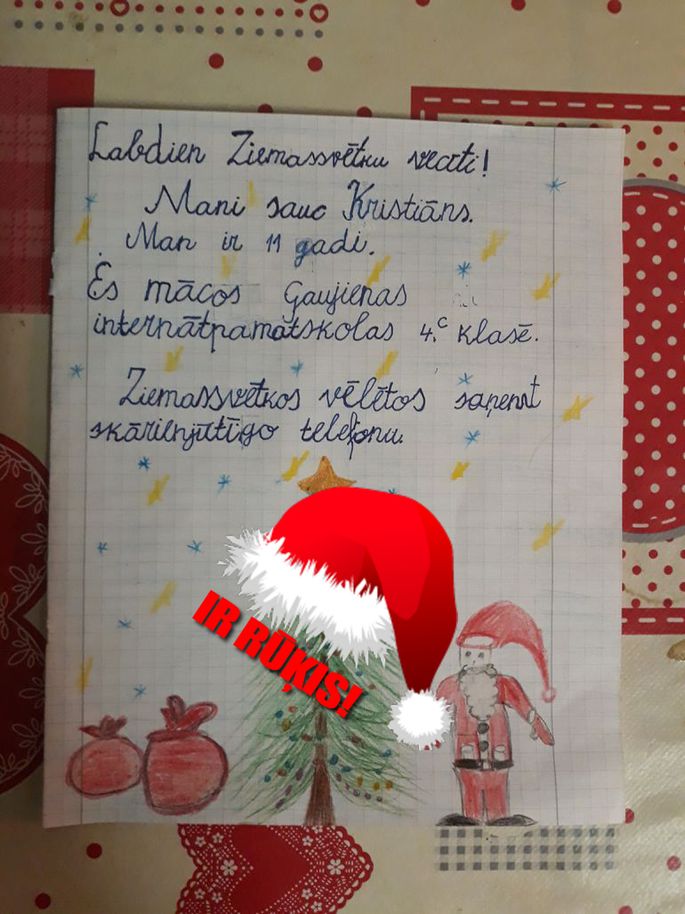 Labdien Ziemassvētku vecīti!
Mani sauc Kristiāns.
Man ir 11 gadi.
Es mācos Gaujienas
internātpamatskolas 4.c klasē.
Ziemassvētkos vēlētos saņemt
skārienjūtīgo telefonu.
IR RŪĶIS!